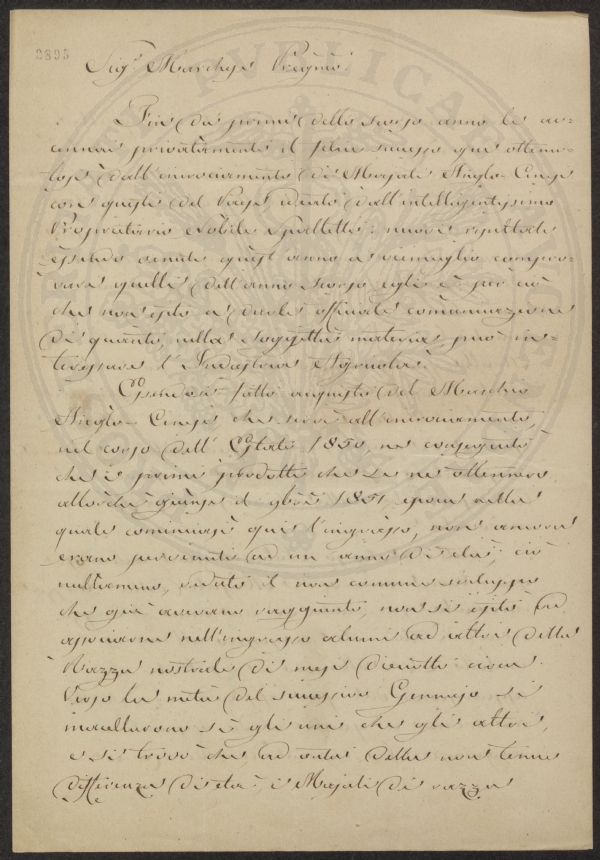 2895
Sig.r Marchese Pregmo
Fin da' primi dello scorso anno le ac=
cennai privatamente il felice successo qui ottenu-
tosi dall'incrociamento di Majali Anglo-Cinesi
con quelli del Paese ideato dall'intelligentissimo
Proprietario Nobile nuovi risultati
essendo venuti quest'anno a viemeglio compro-
vare quelli dell'anno scorso egli è per ciò
che non esito a darle officiale comunicazione
di quanto, nella soggetta materia, può in-
teressare l'Industria Agricola.
fatto acquisto del Maschio
Anglo-Cinese che servì all'incrociamento,
nel corso dell'Estate 1850, ne conseguitò
che i primi prodotti che se ne ottennero
allorchè giunse il 9bre 1851, epoca nella
quale cominciasi qui l'ingrasso, non ancora
erano pervenuti ad un anno di età; ciò
nullameno, veduto il non comune sviluppo
che già avevano raggiunto, non si esitò ad
associarne nell'ingrasso alcuni ad altri della
Razza nostrale di mesi dieciotto circa.
Verso la metà del successivo Gennajo si
macellarono sì gli uni che gli altri,
e si trovò che, ad onta della non tenue
differenza di età, i Majali di razza